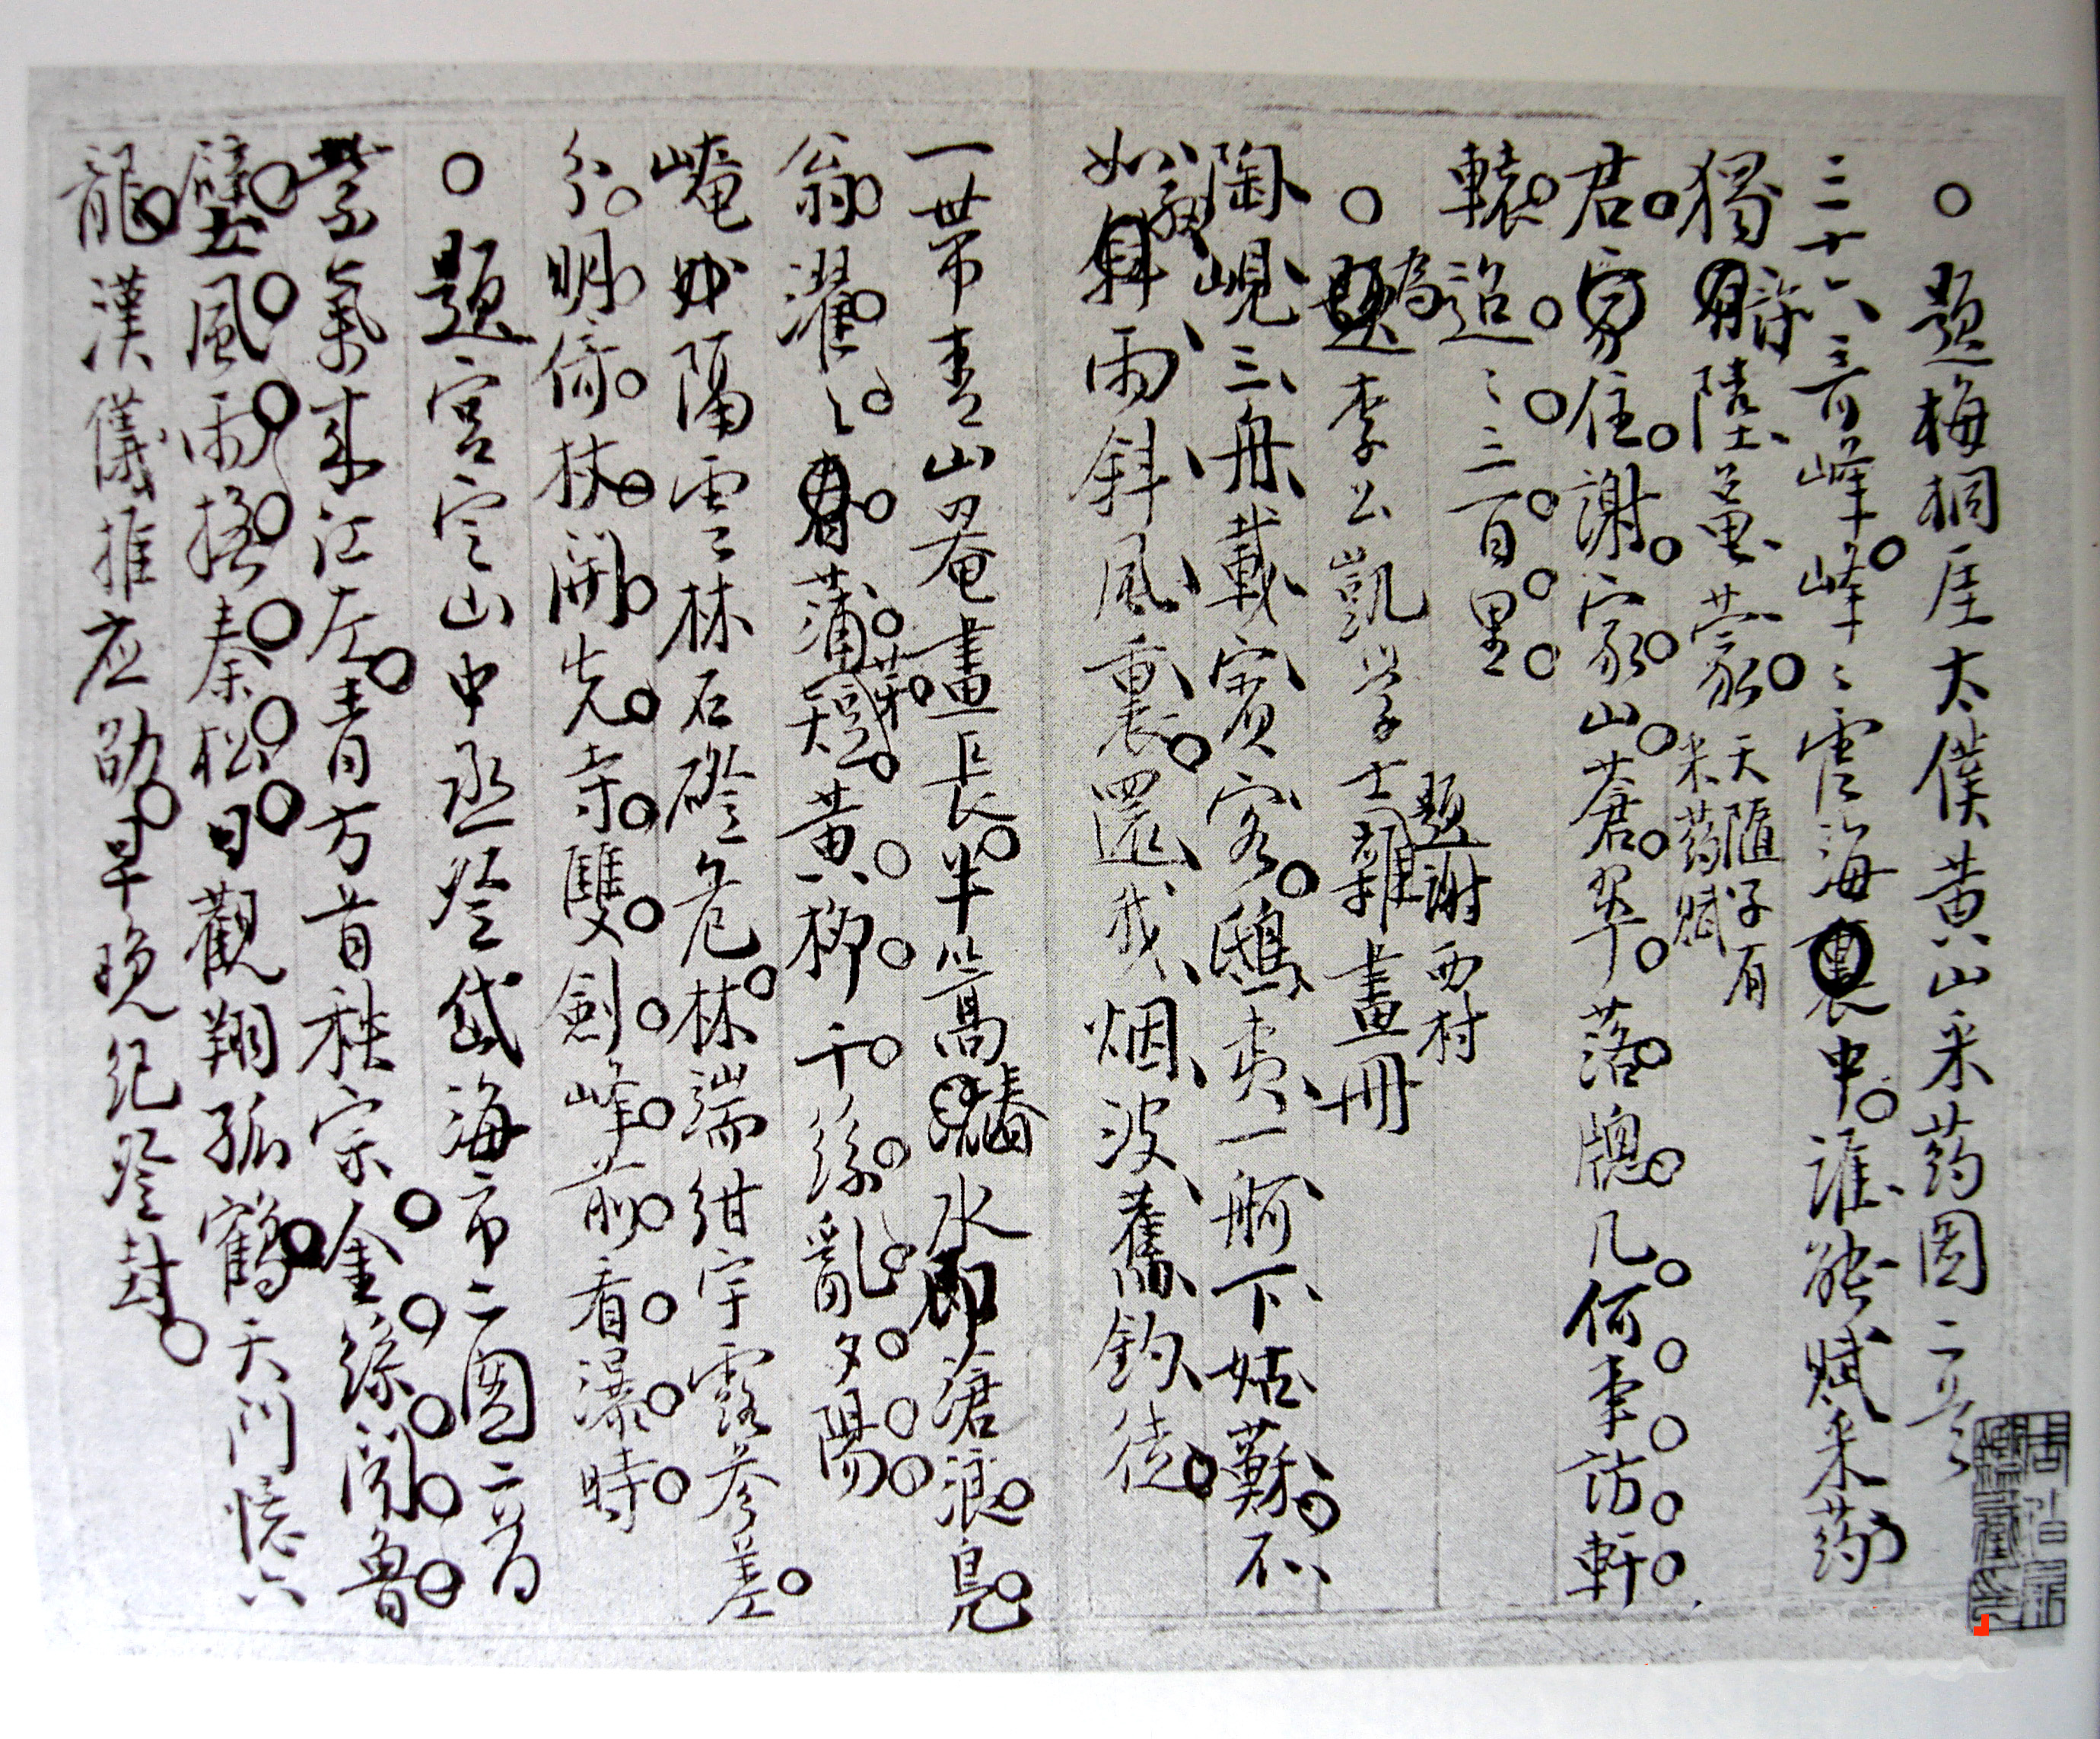 題梅桐厓太僕黃山采药圖二首
三十六峰峰〻雲海裏中誰能賦采药
獨有許陸龜蒙天隨子有
采药賦
君家住謝家山蒼翠落牕几何事訪軒
轅迢〻三百里
題謝西村
題為李公凱學士雜畫冊
陶峴三舟載賓客鴟夷一舸下姑蘇不
如教斜雨斜風裏還我烟波舊釣徒
一帶青山罨畫長半篙春水即滄浪鳧
翁濯〻春蒲芽短黃柳千絲亂夕陽
崦㘭隔雲林石磴危林端紺宇露參差
分明倚杖開先寺雙劍峰前看瀑時
題宮定山中丞登岱海市二圖二首
紫氣來江左青方首秩宗金絲聞魯
壁風雨撫秦松日觀翔孤鶴天門憶六
龍漢儀推应劭早晚紀登封